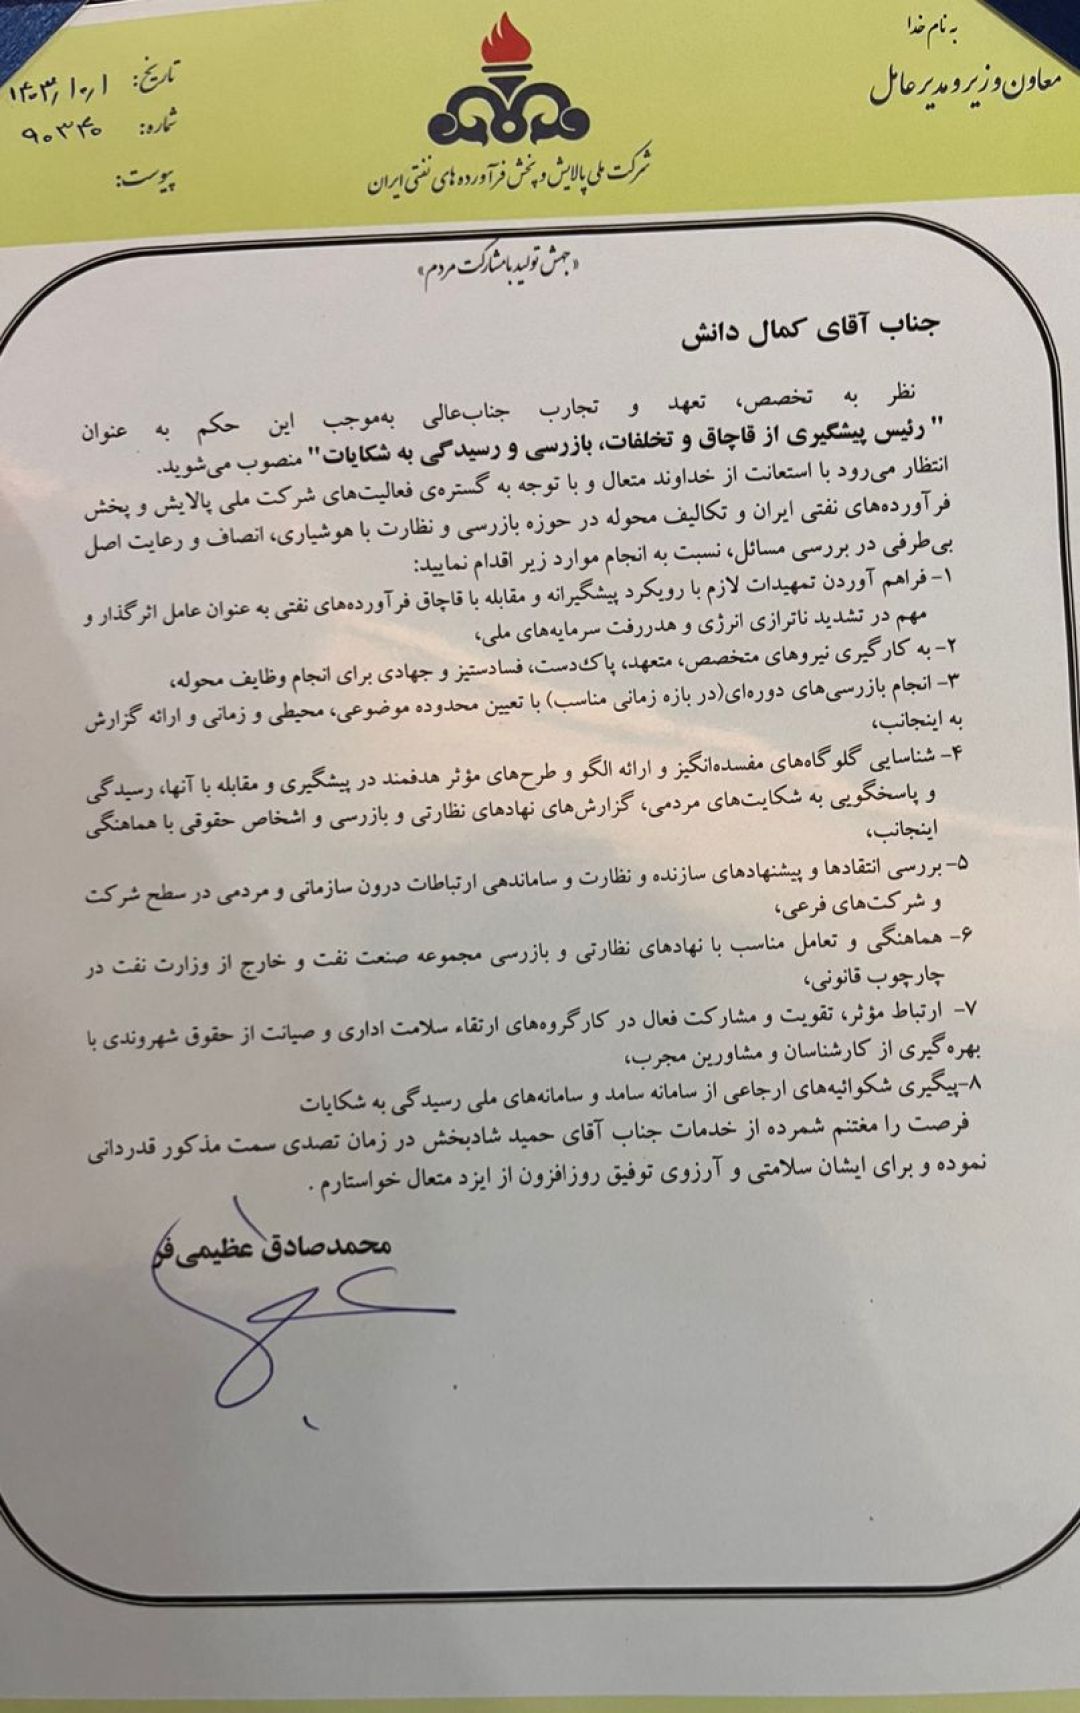 به نام خدا
معاون وزیر و مدیرعامل
شرکت ملی پالایش و پخش فرآورده های نفتی ایران
تاریخ: ۱۴۰۳/۱۰/۱
شماره: ۹۰۳۴۰
پیوست:
«جهش تولید با مشارکت مردم»
جناب آقای کمال دانش
نظر به تخصص، تعهد و تجارب جناب‌عالی به‌موجب این حکم به عنوان
" رئیس پیشگیری از قاچاق و تخلفات، بازرسی و رسیدگی به شکایات" منصوب می‌شوید.
انتظار می‌رود با استعانت از خداوند متعال و با توجه به گستره‌ی فعالیت‌های شرکت ملی پالایش و پخش
فرآورده‌های نفتی ایران و تکالیف محوله در حوزه بازرسی و نظارت با هوشیاری، انصاف و رعایت اصل
بی‌طرفی در بررسی مسائل، نسبت به انجام موارد زیر اقدام نمایید:
۱- فراهم آوردن تمهیدات لازم با رویکرد پیشگیرانه و مقابله با قاچاق فرآورده‌های نفتی به عنوان عامل اثرگذار و
مهم در تشدید ناترازی انرژی و هدررفت سرمایه‌های ملی،
۲- به کارگیری نیروهای متخصص، متعهد، پاک‌دست، فسادستیز و جهادی برای انجام وظایف محوله،
۳- انجام بازرسی‌های دوره‌ای(در بازه زمانی مناسب) با تعیین محدوده موضوعی، محیطی و زمانی و ارائه گزارش
به اینجانب،
۴- شناسایی گلوگاه‌های مفسده‌انگیز و ارائه الگو و طرح‌های مؤثر هدفمند در پیشگیری و مقابله با آنها، رسیدگی
و پاسخگویی به شکایت‌های مردمی، گزارش‌های نهادهای نظارتی و بازرسی و اشخاص حقوقی با هماهنگی
اینجانب،
۵- بررسی انتقادها و پیشنهادهای سازنده و نظارت و ساماندهی ارتباطات درون سازمانی و مردمی در سطح شرکت
و شرکت‌های فرعی،
۶- هماهنگی و تعامل مناسب با نهادهای نظارتی و بازرسی مجموعه صنعت نفت و خارج از وزارت نفت در
چارچوب قانونی،
۷- ارتباط مؤثر، تقویت و مشارکت فعال در کارگروه‌های ارتقاء سلامت اداری و صیانت از حقوق شهروندی با
بهره‌گیری از کارشناسان و مشاورین مجرب،
۸-پیگیری شکوائیه‌های ارجاعی از سامانه سامد و سامانه‌های ملی رسیدگی به شکایات
فرصت را مغتنم شمرده از خدمات جناب آقای حمید شادبخش در زمان تصدی سمت مذکور قدردانی
نموده و برای ایشان سلامتی و آرزوی توفیق روزافزون از ایزد متعال خواستارم .
محمدصادق عظیمی‌فر